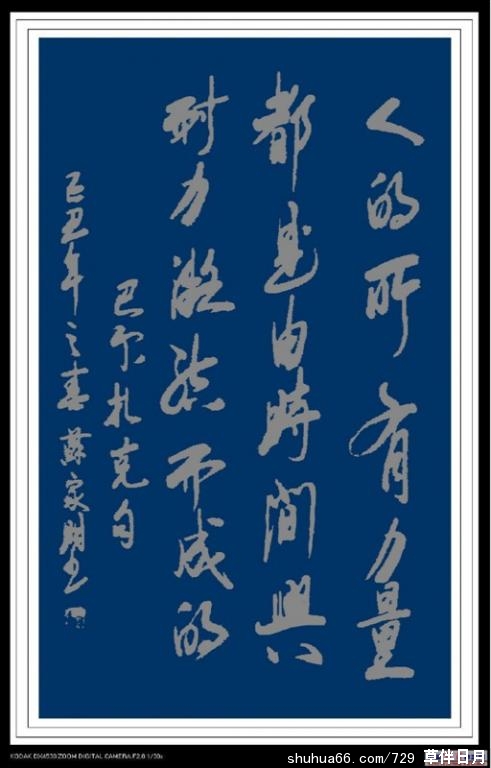 人的所有力量
都是由時間與
耐力凝結而成的
巴尔扎克句
己丑年之春 蘇家明书
KODAK DX4530 ZOOM DIGITAL CAMERA F2.8 1/30s
shuhua66.com/729 草伴日月